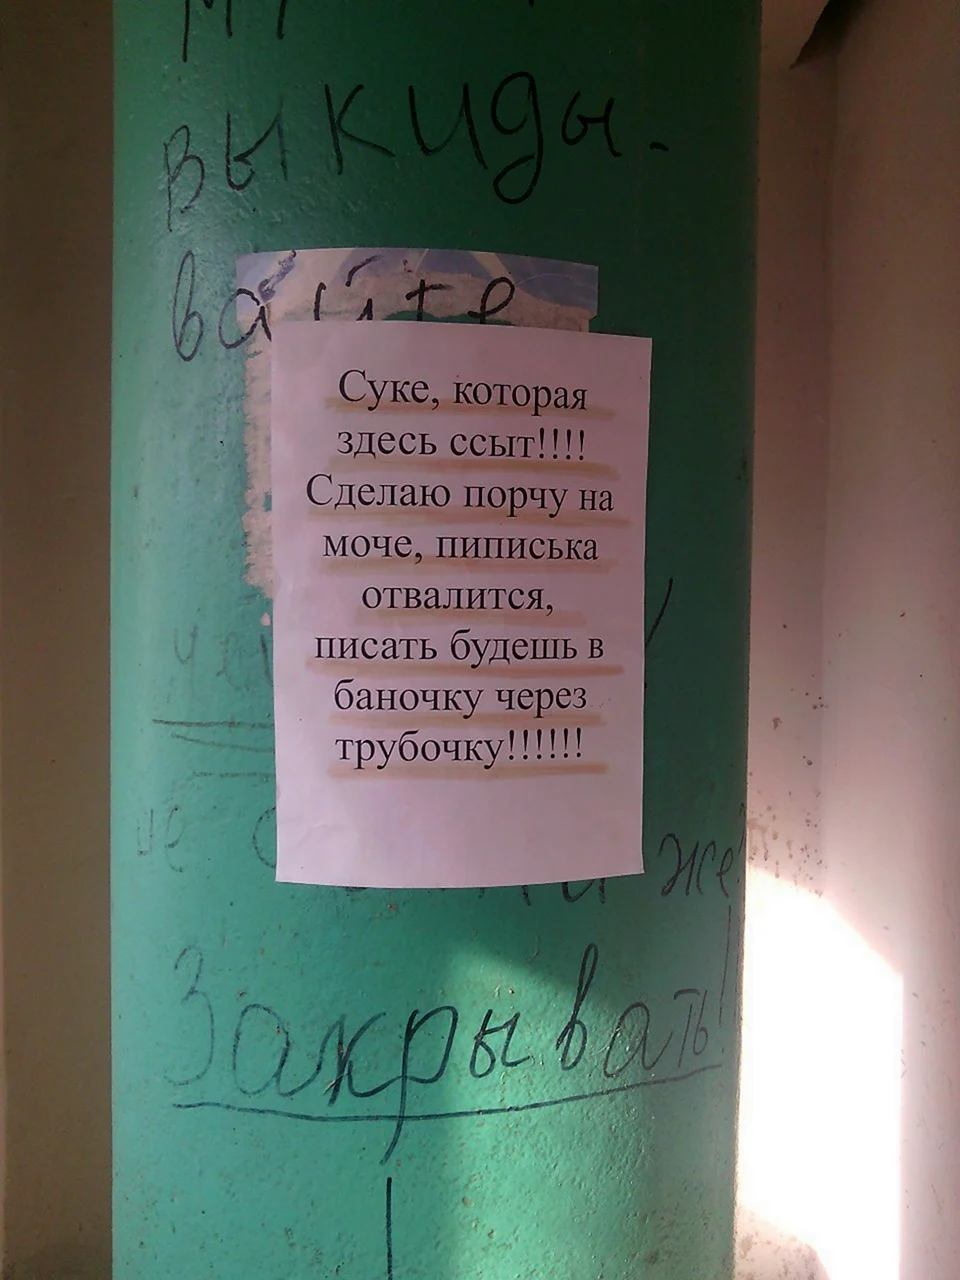 выкиды-
вайте
Суке, которая
здесь ссыт!!!!
Сделаю порчу на
моче, пиписька
отвалится,
писать будешь в
баночку через
трубочку!!!!!!
не
же
Закрывать!